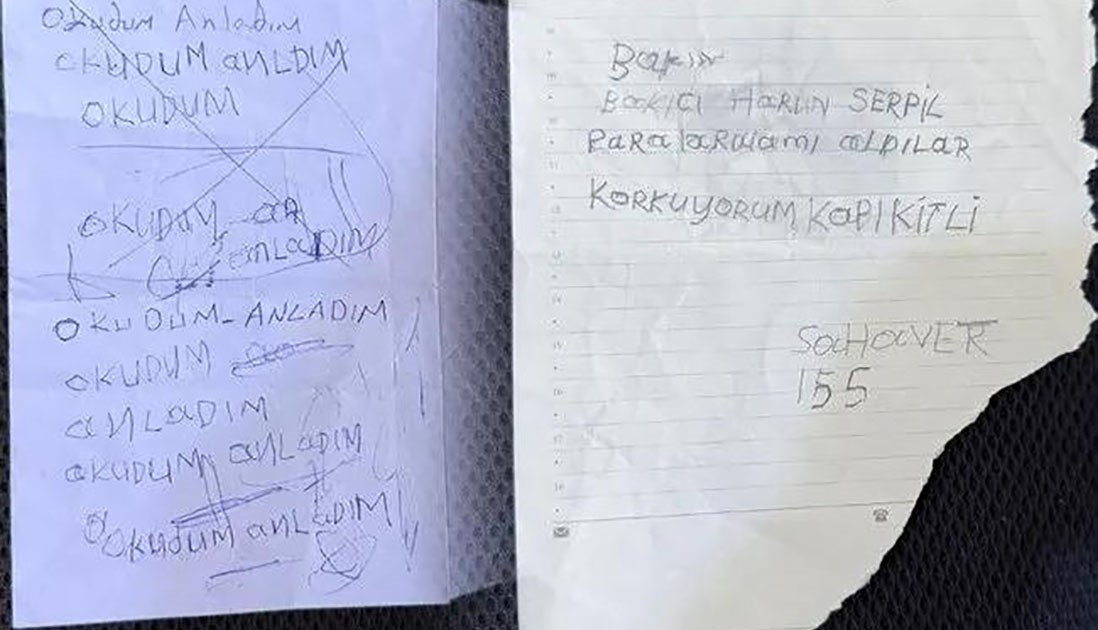 Okudum Anladım
OKUDUM anLDIM
OKUDUM
OKUDUM
anLaDIM
OKUDUM-ANLADIM
OKUDUM
anLaDIM
OKUDUM anLaDIM
Okudum anLaDIM
Bakın
BakıCI HARUN SERPİL
PaRalaRımı alDILAR
KORKUYORUM KAPI KİTLİ
155